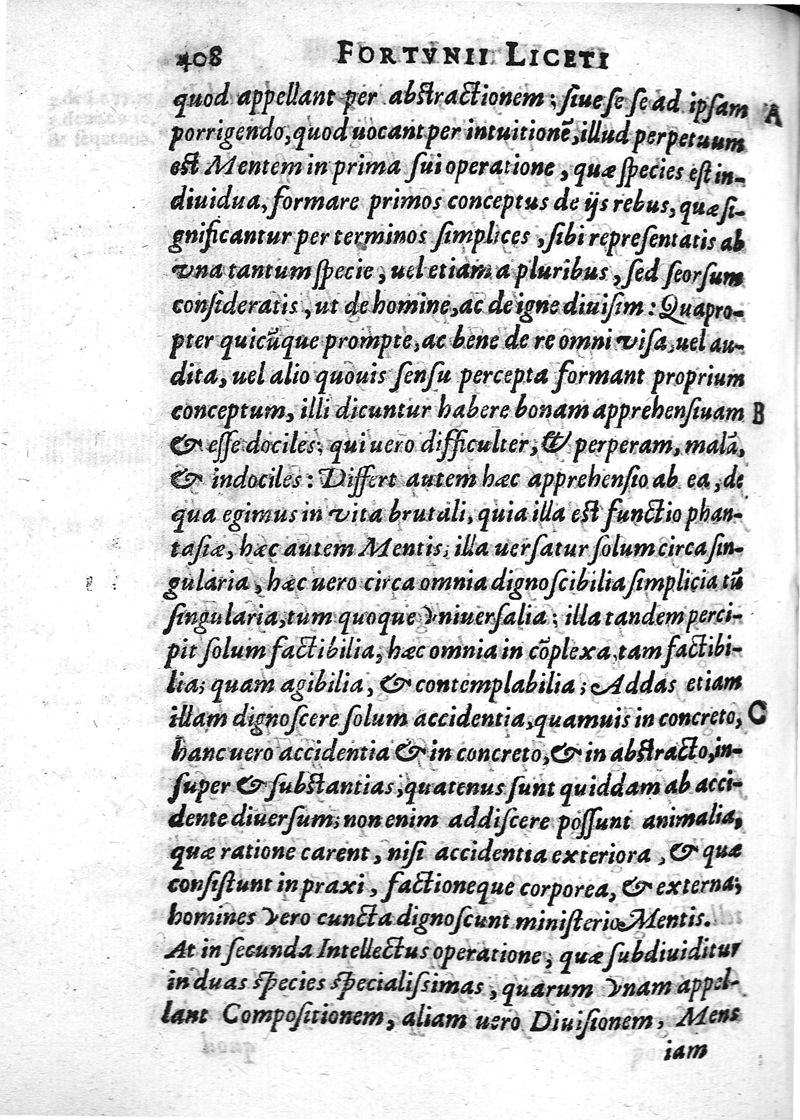 408 FORTVNII LICETI
quod appellant per abstractionem; siue se se ad ipsam A
porrigendo, quod uocant per intuitionē, illud perpetuum
est Mentem in prima sui operatione, quæ species est in-
diuidua, formare primos conceptus de ijs rebus, quæ si-
gnificantur per terminos simplices, sibi repręsentatis ab
vna tantum specie, uel etiam a pluribus, sed seorsum
consideratis, ut de homine, ac de igne diuisim: Quapro-
pter quicũque prompte, ac bene de re omni visa, uel au-
dita, uel alio quouis sensu percepta formant proprium
conceptum, illi dicuntur habere bonam apprehensiuam B
& esse dociles; qui uero difficulter, & perperam, malā,
& indociles: Differt autem hæc apprehensio ab ea, de
qua egimus in vita brutali, quia illa est functio phan-
tasiæ, hæc autem Mentis; illa uersatur solum circa sin-
gularia, hæc uero circa omnia dignoscibilia simplicia tū
singularia, tum quoque vniuersalia; illa tandem perci-
pit solum factibilia, hæc omnia in cōplexa, tam factibi-
lia; quam agibilia, & contemplabilia; Addas etiam
illam dignoscere solum accidentia, quamuis in concreto, C
hanc uero accidentia & in concreto, & in abstracto, in-
super & substantias, quatenus sunt quiddam ab acci-
dente diuersum; non enim addiscere possunt animalia,
quæ ratione carent, nisi accidentia exteriora, & quæ
consistunt in praxi, factioneque corporea, & externa;
homines vero cuncta dignoscunt ministerio Mentis.
At in secunda Intellectus operatione, quæ subdiuiditur
in duas species specialissimas, quarum vnam appel-
lant Compositionem, aliam uero Diuisionem, Mens
iam